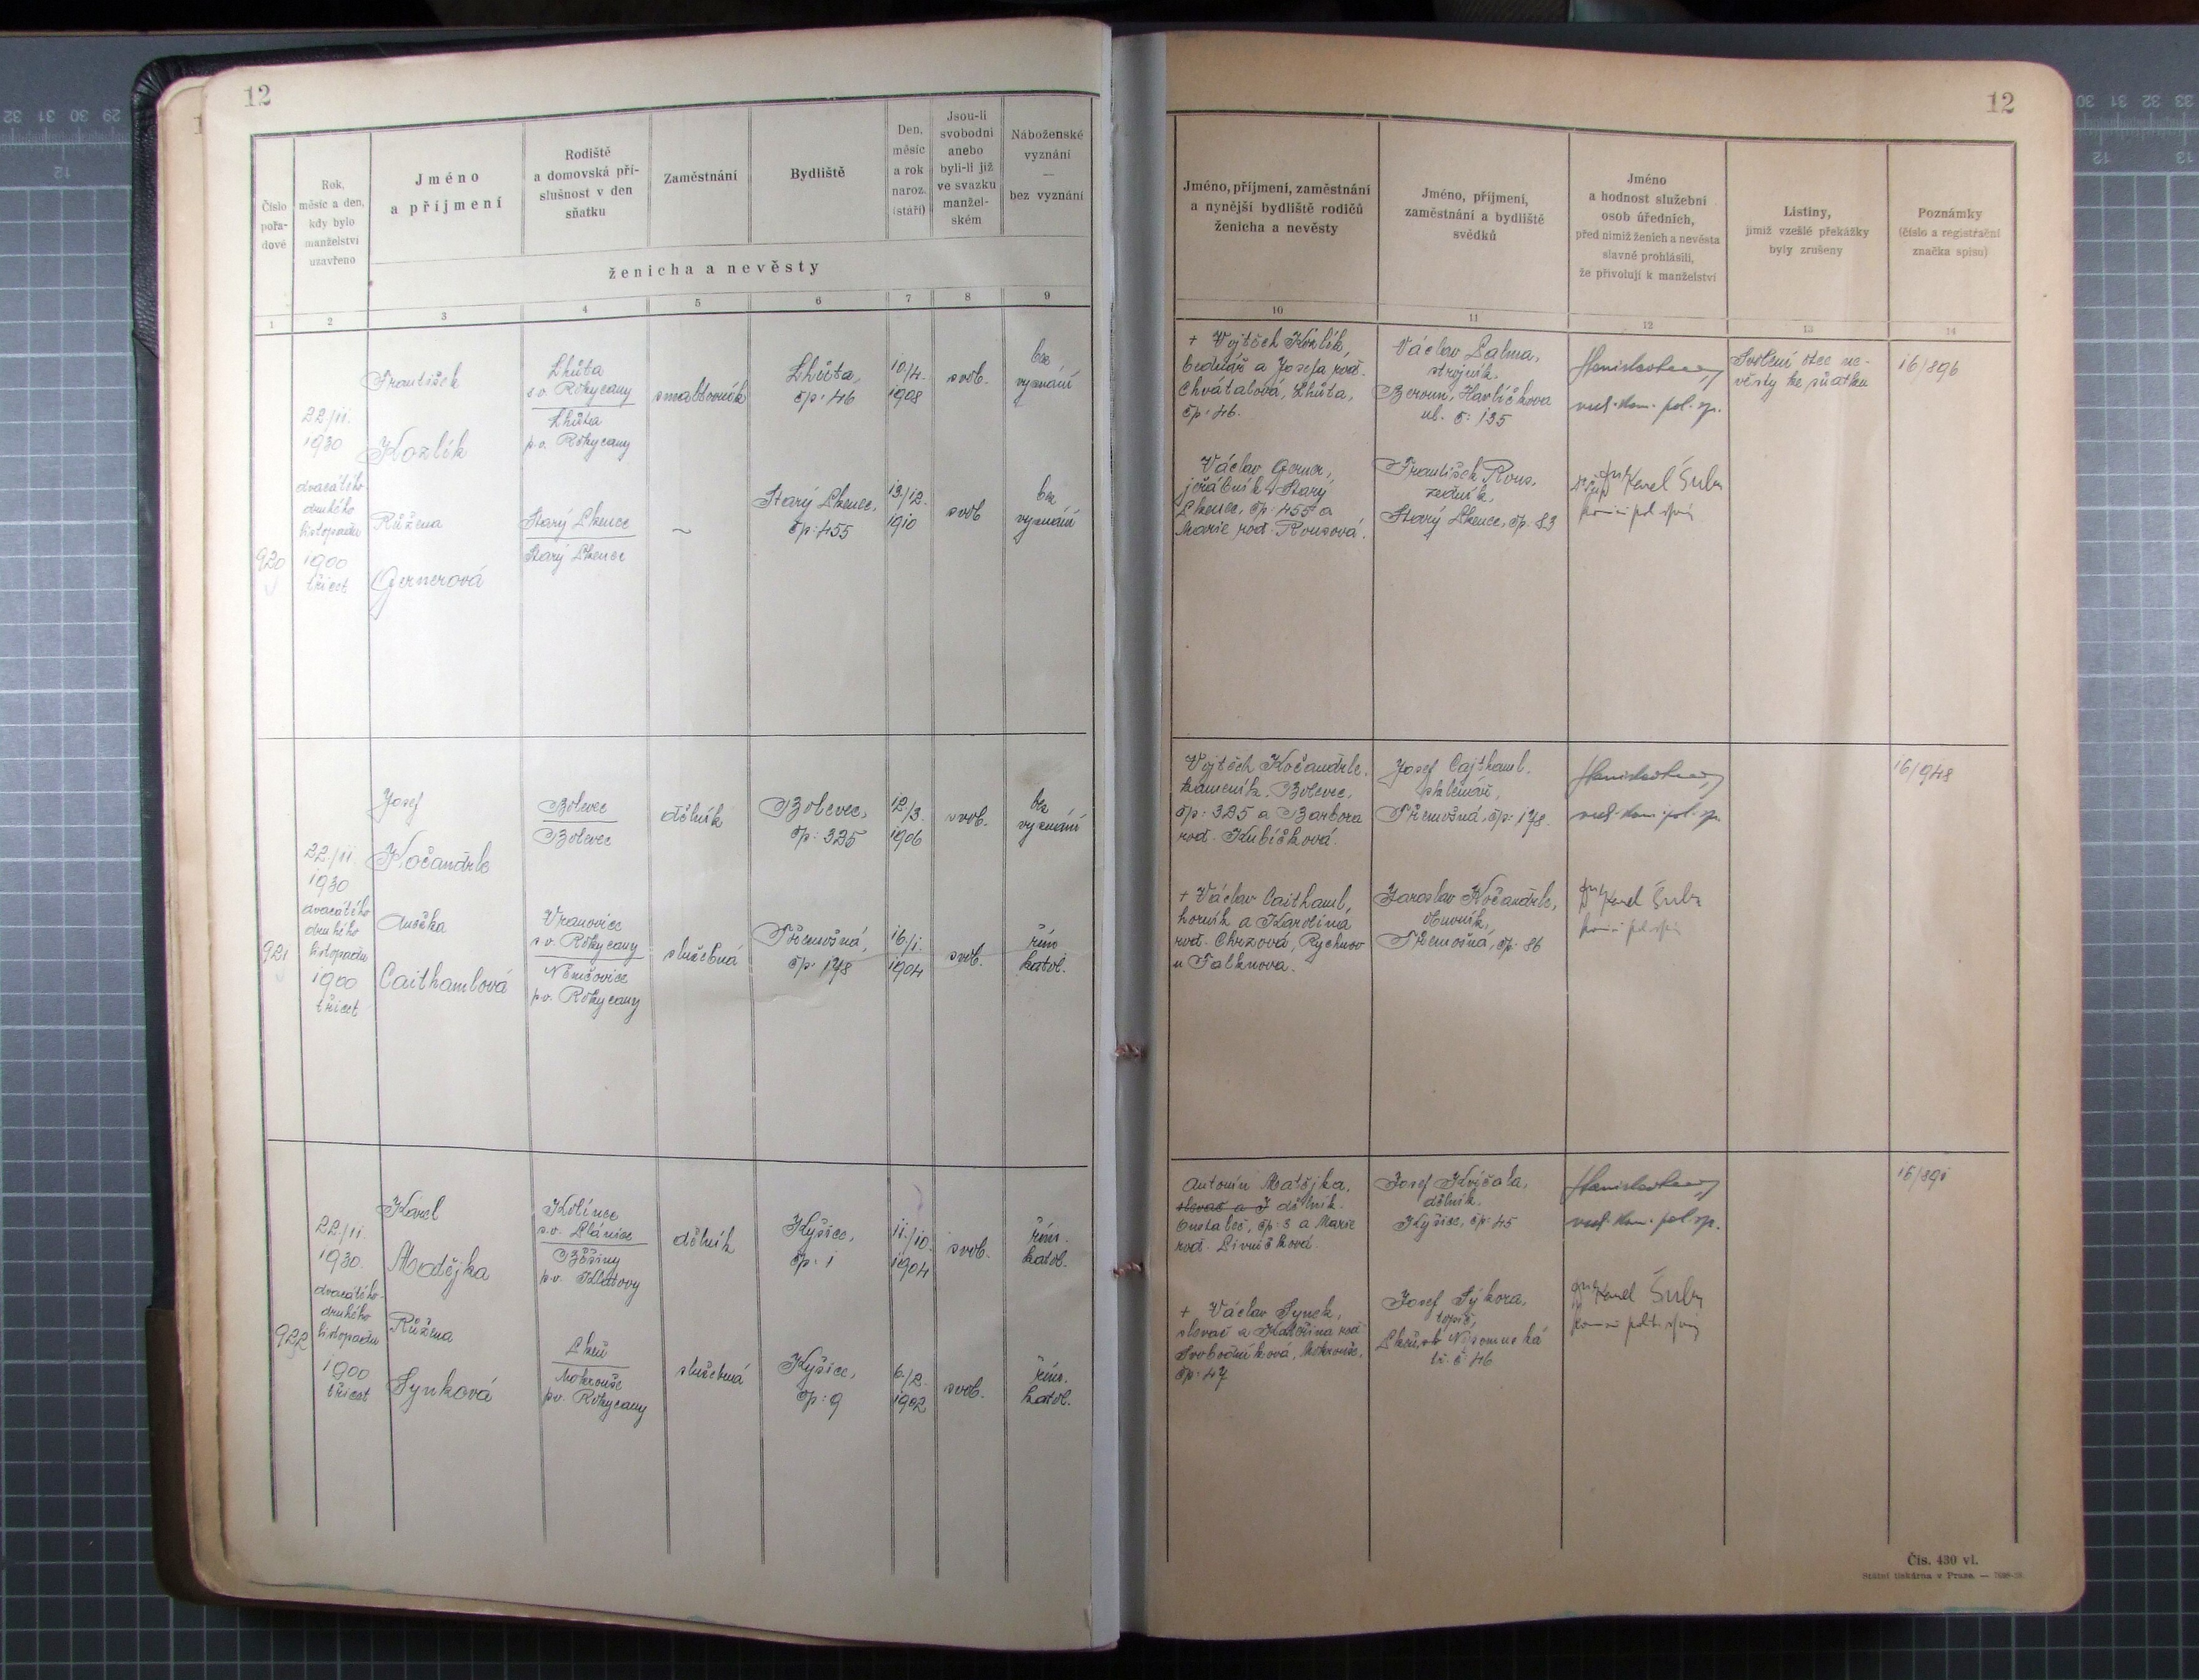 12
Číslo
pořa-
dové
Rok,
měsíc a den,
kdy bylo
manželství
uzavřeno
Jméno
a příjmení
Rodiště
a domovská pří-
slušnost v den
sňatku
Zaměstnání
Bydliště
Den,
měsíc
a rok
naroz.
(stáří)
Jsou-li
svobodni
anebo
byli-li již
ve svazku
manžel-
ském
Náboženské
vyznání
—
bez vyznání
ženicha a nevěsty
1 2 3 4 5 6 7 8 9
920
22./11.
1930
dvacátého
druhého
listopadu
1900
třicet
František
Kozlík
Lhůta
s.o. Rokycany
Lhůta
p.o. Rokycany
smaltovník
Lhůta,
čp: 46
10./4.
1908
svob.
bez
vyznání
Růžena
Gernerová
Starý Plzenec
Starý Plzenec
~
Starý Plzenec,
čp: 455
13./12.
1910
svob
bez
vyznání
921
22./11.
1930
dvacátého
druhého
listopadu
1900
třicet
Josef
Kočandrle
Bolevec
Bolevec
dělník
Bolevec,
čp: 325
12./3.
1906
svob.
bez
vyznání
Anežka
Caithamlová
Vranovice
s.o. Rokycany
Němčovice
p.o. Rokycany
služebná
Třemošná,
čp. 178
16./1.
1904
svob.
řím
katol.
922
22./11.
1930.
dvacátého-
druhého
listopadu
1900
třicet
Karel
Matějka
Kolinec
s.o. Plánice
Běšiny
p.o. Klatovy
dělník
Kyšice,
čp: 1
11./10.
1904
svob.
řím.
katol.
Růžena
Synková
Plzeň
Mokrouše
p.o. Rokycany
služebná
Kyšice,
čp: 9
6./2.
1902
svob.
řím.
katol.
12
Jméno, příjmení, zaměstnání
a nynější bydliště rodičů
ženicha a nevěsty
Jméno, příjmení,
zaměstnání a bydliště
svědků
Jméno
a hodnost služební
osob úředních,
před nimiž ženich a nevěsta
slavně prohlásili,
že přivolují k manželství
Listiny,
jimiž vzešlé překážky
byly zrušeny
Poznámky
(číslo a registrační
značka spisu)
10 11 12 13 14
+ Vojtěch Kozlík,
bednář a Josefa rod.
Chvátalová, Lhůta,
čp: 46.
Václav Palma,
strojník,
Beroun, Havlíčkova
ul. č: 135
pol. sp.
Svolení otce ne-
věsty ke sňatku
16/896
Václav Gerner,
jeřábník, Starý
Plzenec, čp: 455 a
Marie rod. Rousová.
František Rous,
zedník,
Starý Plzenec, čp. 83
Karel Šuba
Vojtěch Kočandrle,
kameník, Bolevec,
čp: 325 a Barbora
rod. Kubíčková.
Josef Cajthaml,
sklenář,
Třemošná, čp: 178.
pol. sp.
16/948
+ Václav Caithaml,
horník a Karolina
rod. Chrzová, Rychnov
u Falknova.
Jaroslav Kočandrle,
Třemošná, čp: 86
Karel Šuba
Antonín Matějka,
slevač a J dělník.
čp: 3 a Marie
rod.
Josef
dělník,
Kyšice, čp: 45
pol. sp.
16/891
+ Václav Synek,
slevač a Kateřina rod.
Svobodníková, Mokrouše,
čp: 47
Josef Sýkora,
topič,
Plzeň,
tř. č: 46
Karel Šuba
Čís. 430 vl.
Státní tiskárna v Praze. —